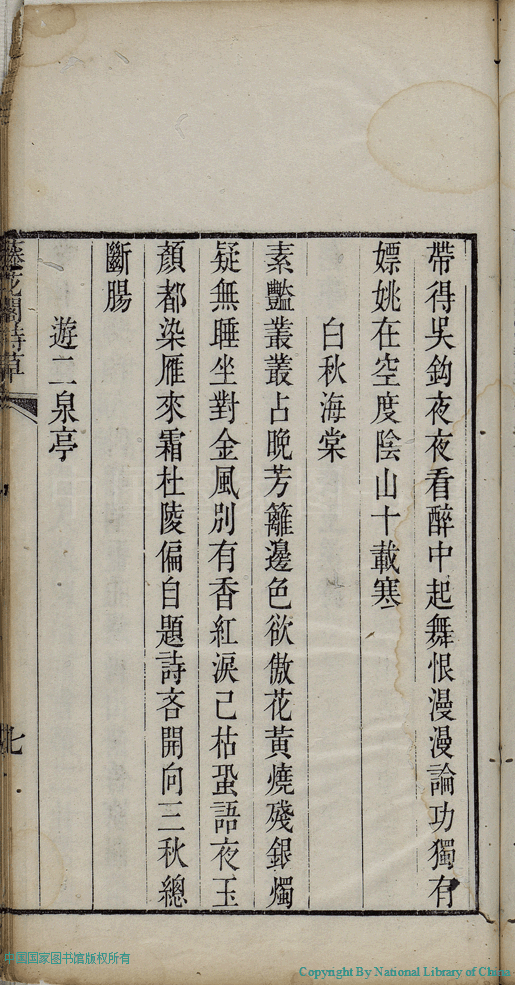 帶得吳鈎夜夜看醉中起舞恨漫漫論功獨有
嫖姚在空度陰山十載寒
白秋海棠
素豔叢叢占晚芳籬邊色欲傲花黃燒殘銀燭
疑無睡坐對金風別有香紅淚已枯蛩語夜玉
顏都染雁來霜杜陵偏自題詩吝開向三秋總
斷腸
遊二泉亭
藤花閣詩草
七
中国国家图书馆版权所有
Copyright By National Library of China